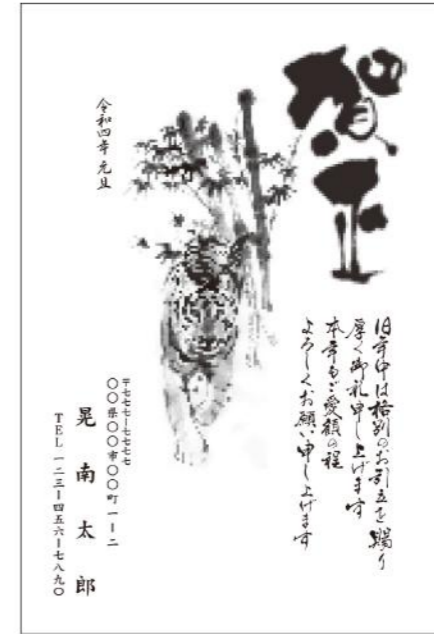 賀正
旧年中は格別のお引立を賜り
厚く御礼申し上げます
本年もご愛顧の程
よろしくお願い申し上げます
令和四年 元旦
〒七七七－七七七七
〇〇県〇〇市〇〇町一－二
晃南太郎
TEL 一二三－四五六－七八九〇